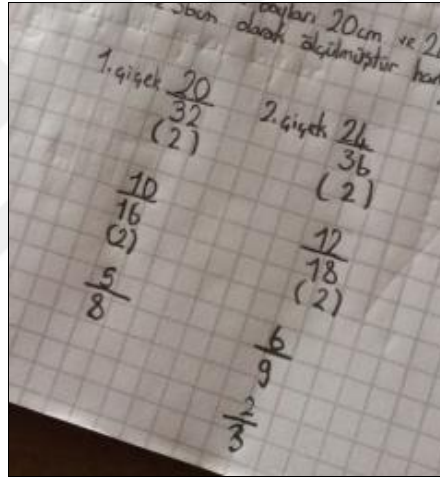 boyları 20cm ve 2
36cm olarak ölçülmüştür han
1. çiçek 20/32
(2)
10/16
(2)
5/8
2. çiçek 24/36
(2)
12/18
(2)
6/9
2/3